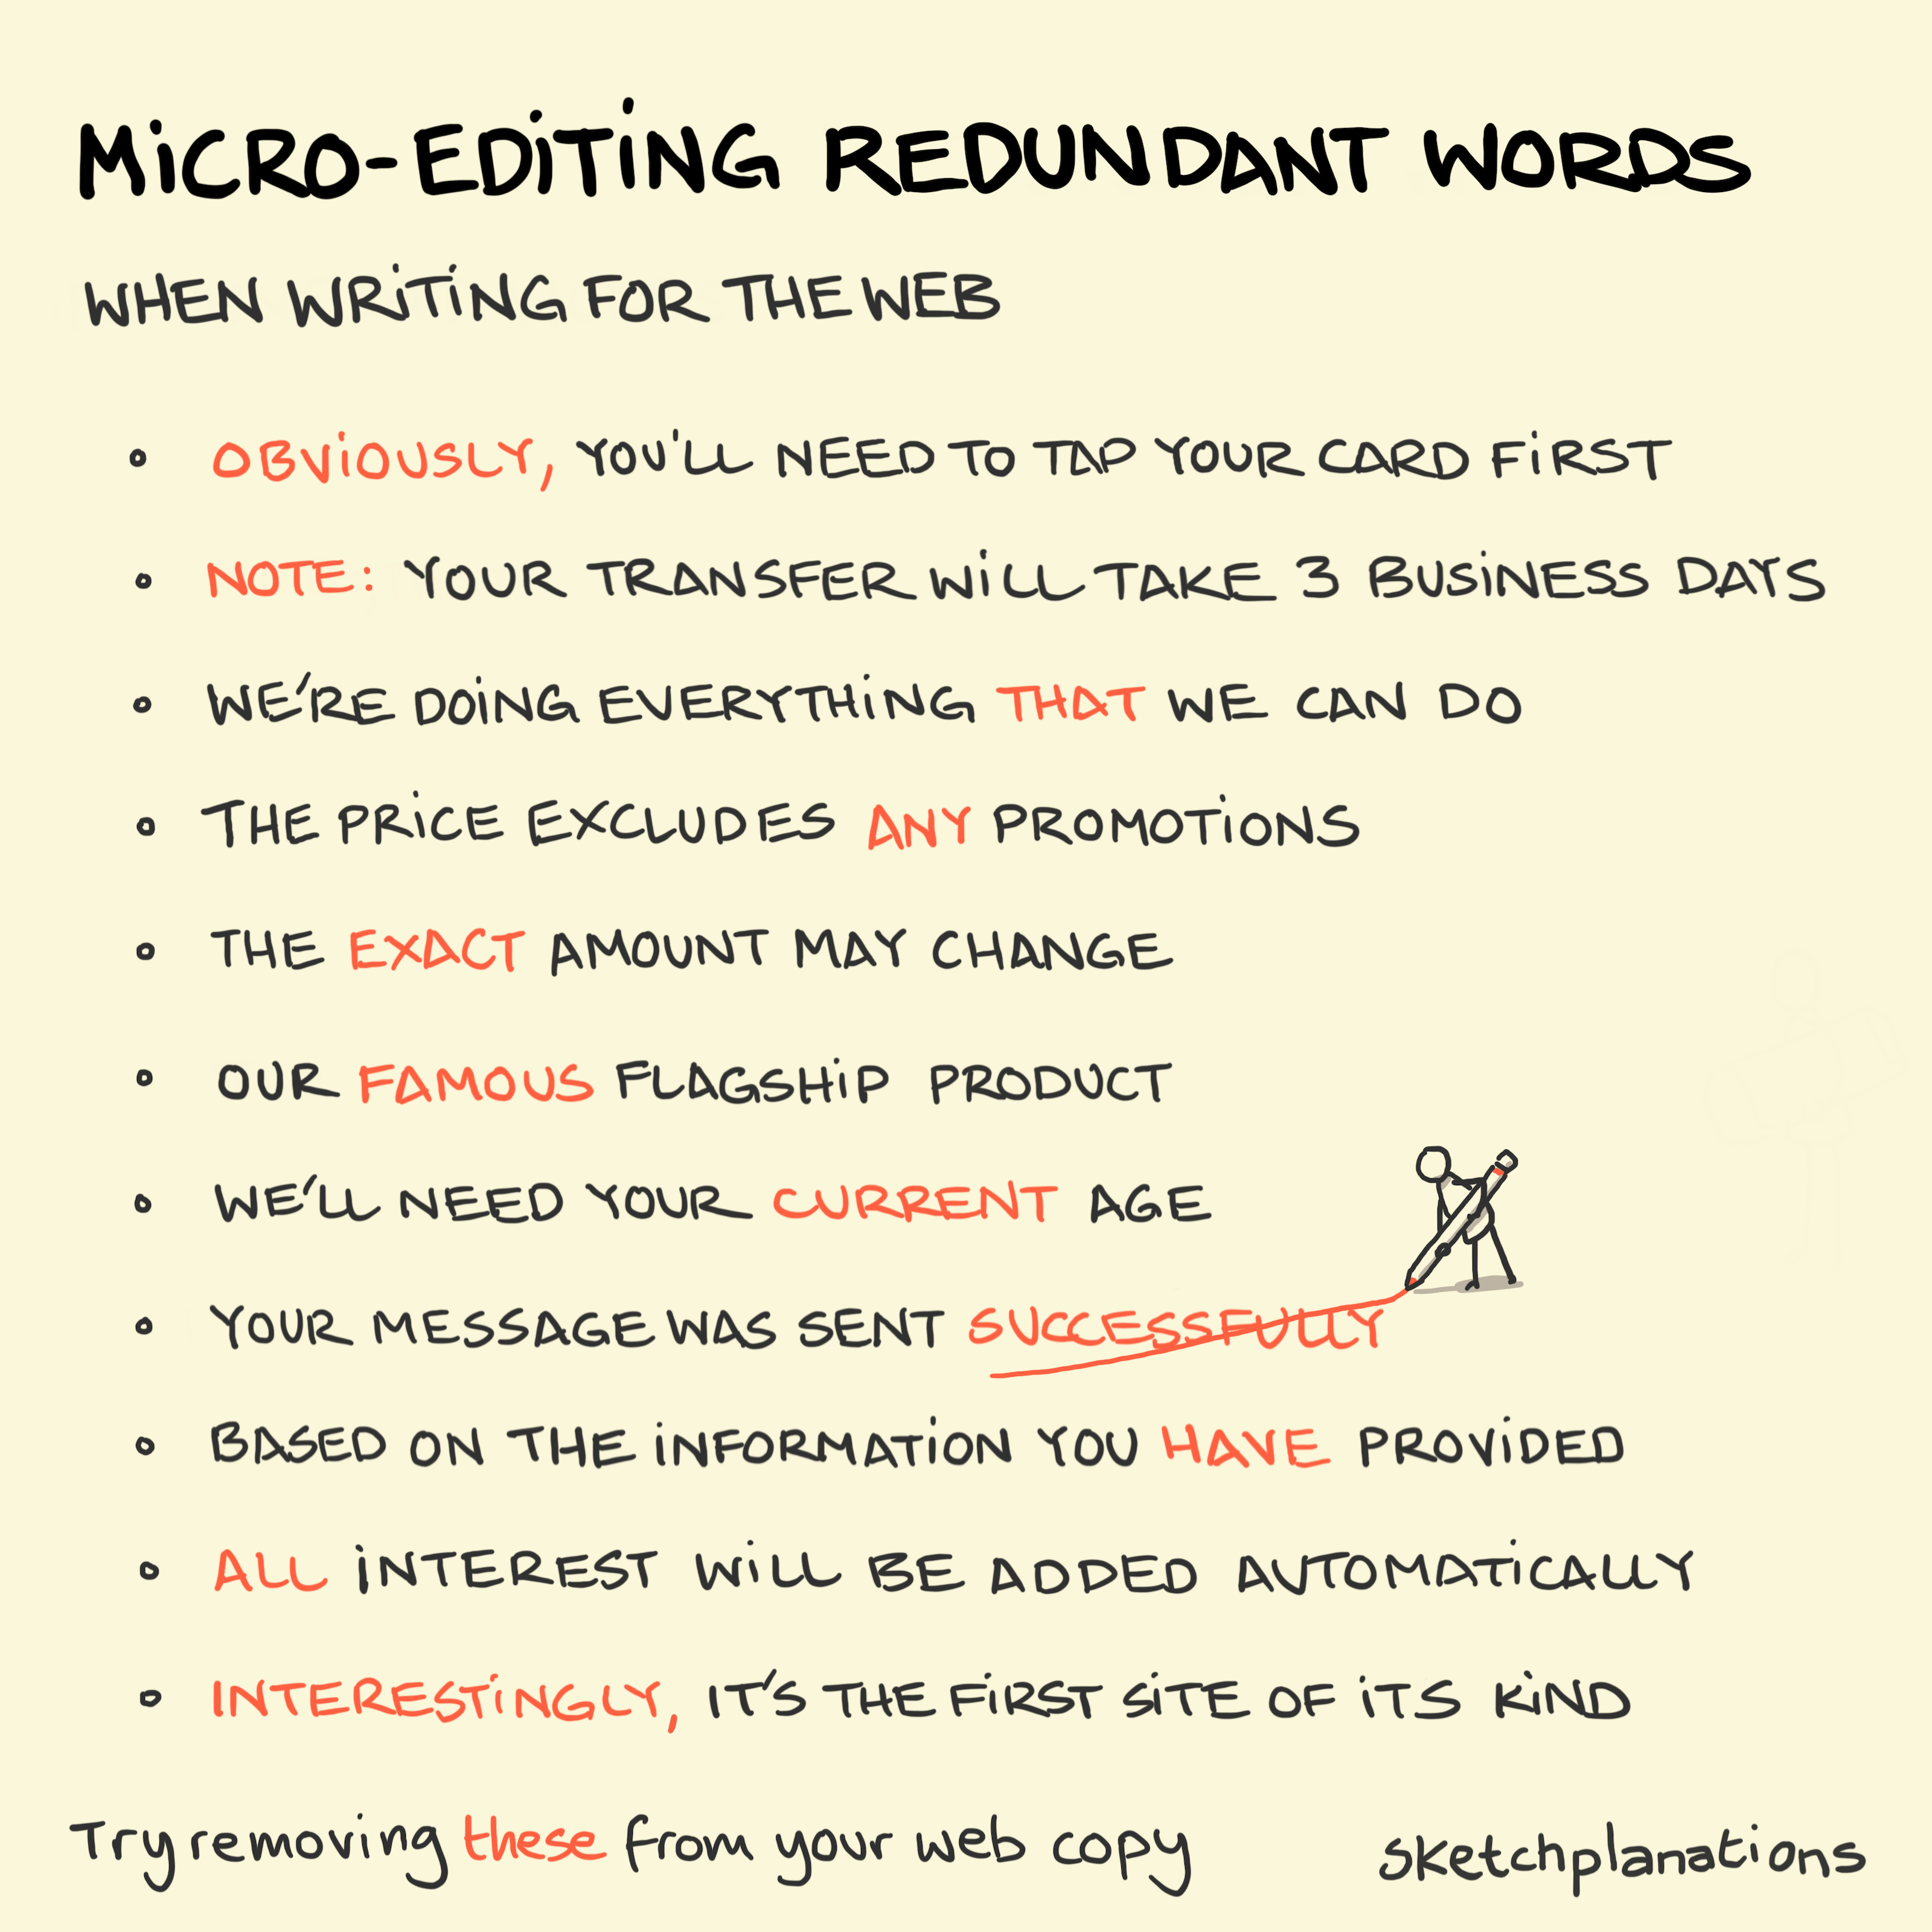 MICRO-EDITING REDUNDANT WORDS
WHEN WRITING FOR THE WEB
OBVIOUSLY, YOU'LL NEED TO TAP YOUR CARD FIRST
NOTE: YOUR TRANSFER WILL TAKE 3 BUSINESS DAYS
WE'RE DOING EVERYTHING THAT WE CAN DO
THE PRICE EXCLUDES ANY PROMOTIONS
THE EXACT AMOUNT MAY CHANGE
OUR FAMOUS FLAGSHIP PRODUCT
WE'LL NEED YOUR CURRENT AGE
YOUR MESSAGE WAS SENT SUCCESSFULLY
BASED ON THE INFORMATION YOU HAVE PROVIDED
ALL INTEREST WILL BE ADDED AUTOMATICALLY
INTERESTINGLY, IT'S THE FIRST SITE OF ITS KIND
Try removing these from your web copy
sketchplanations